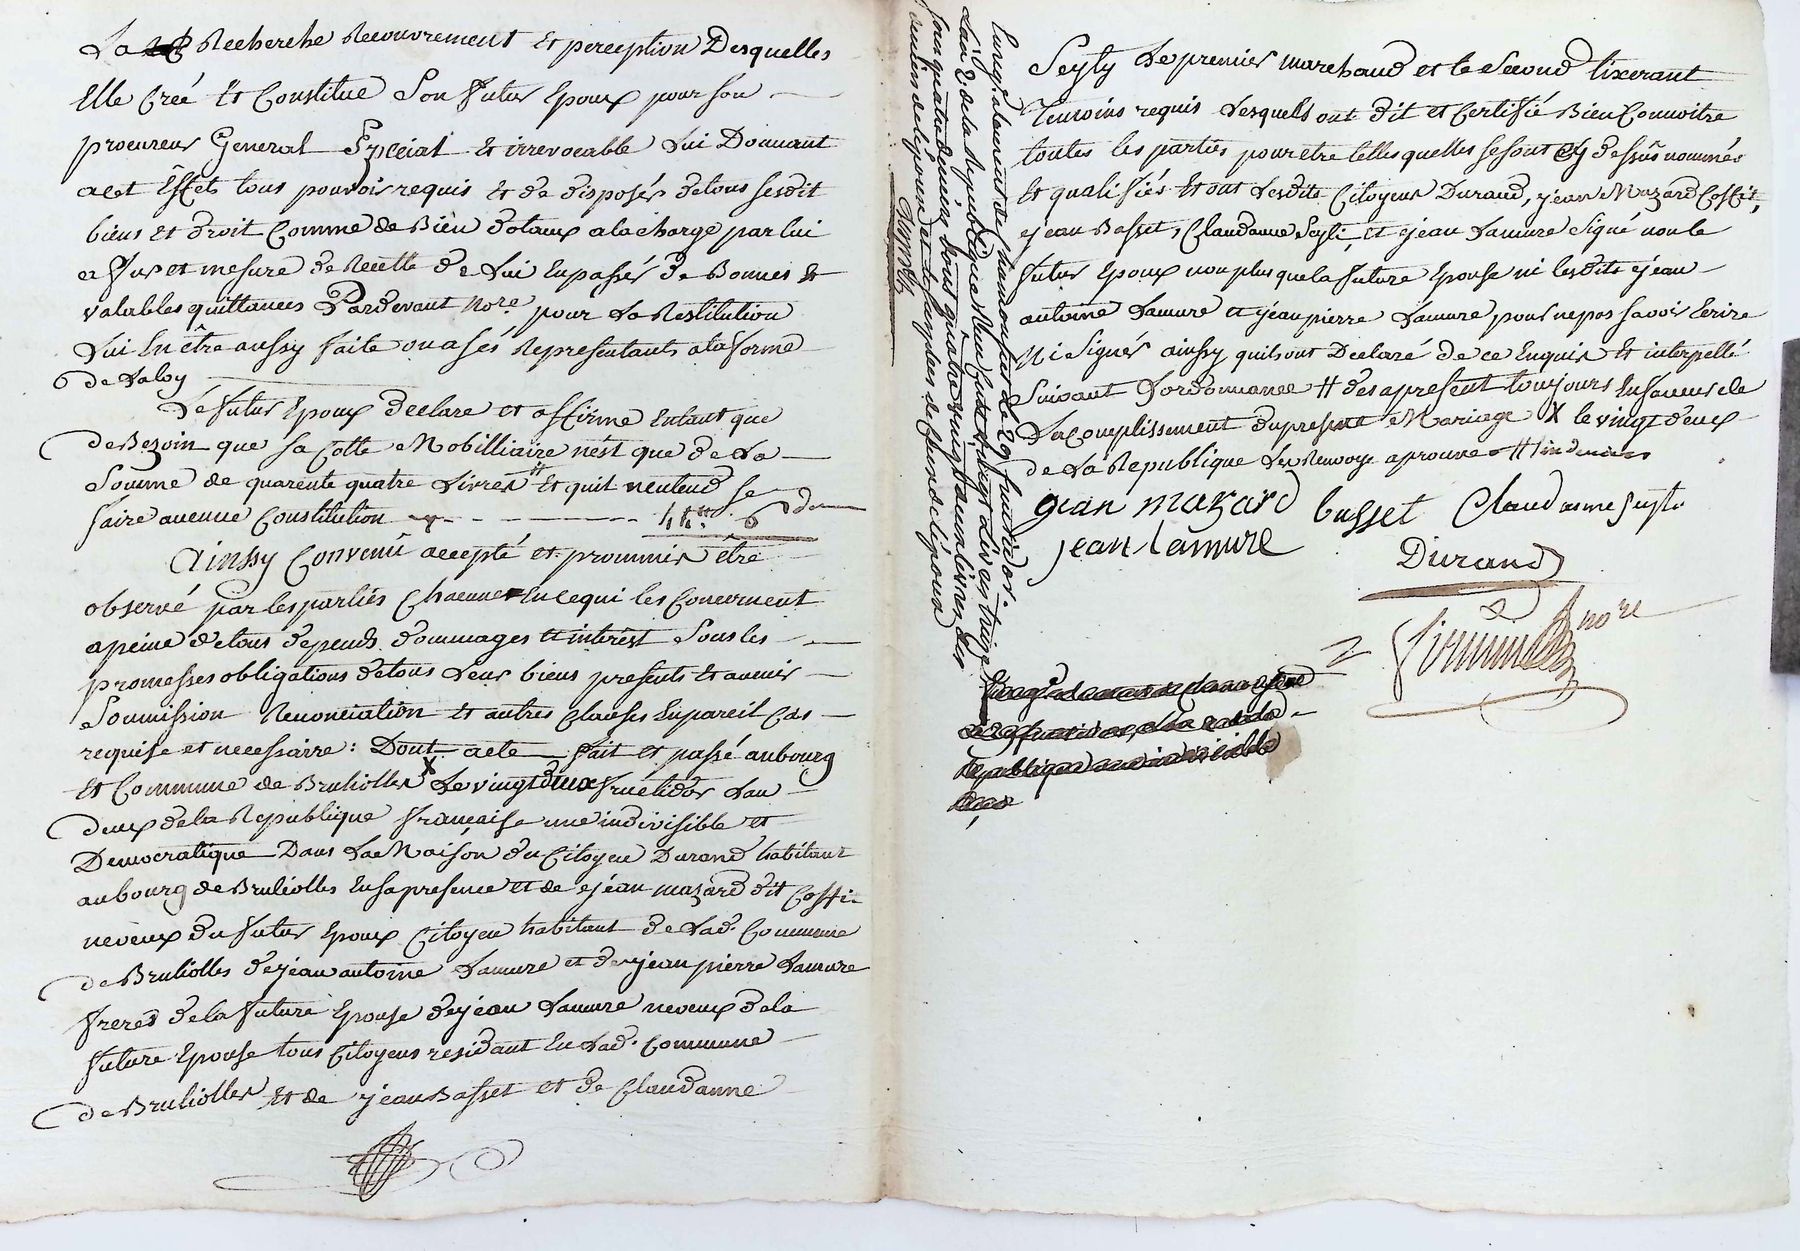 La Recherche Recouvrement Et perception Desquelles
Elle Créé Et Constitue Son futur Epoux pour son
procureur General Special Et irrevocable Lui Donnant
acet Effets tous pouvoir requis Et de disposér de tous sesdit
biens et droit Comme de Bien dotaux a la charge par lui
a fur et mesure de Recette de Lui En passér de Bonnes Et
valables quittances Pardevant Nore. pour La Restitution
Lui En être aussy faite ou a sés Representants a la forme
de La loy
Le futur Epoux declare et affirme Entant que
de Bezoin que sa Cotte Mobilliaire n'est que de La
Somme de quarente quatre Livres # Et quil nentend se
faire aucune Constitution 44tt 6 d
Ainssy Convenû accepté et prommis être
observé par les parties Chacune En ce qui les Concernent
a peine de tous depends dommages et interêst Sous les
promesses obligations de tous Leurs biens presents Et avenir
Soumission Renonciation Et autres Clauses En pareil Cas
requise et necessaire : Dont acte fait et passé au bourg
Et Commune de Brulioller X Le vingt deux fructidor Lan
deux de la Republique française une indivisible et
Democratique Dans La Maison du Citoyen Durand habitant
au bourg de Brulliolles En sa presence et de jéan Mazard dit Coffi
neveux du futur Epoux Citoyen habitant de Lad. Commune
de Brulliolles de jean antoine Lamure et de jean pierre Lamure
freres de la future Epouse de jean Lamure neveux de la
future Epouse tous Citoyens residant En Lad. Commune
de Brulioller Et de jean Basset et de Claudanne
Seyty Le premier marchand et le Second tixerant
Temoins requis Lesquels ont dit et Certifié Bien Connoitre
toutes les parties pour etre telles quelles se sont Cy dessus nommés
Et qualifiés Et ont Lesdits Citoyens Durand, jean Mazard Coffit,
jean Basset, Claudanne Seyti, et jean Lamure Signé non le
futur Epoux non plus que la future Epouse ni lesdits jean
antoine Lamure et jean pierre Lamure pour ne pas savoir Ecrire
Ni Signér ainssy quils ont Declaré de ce Enquis Et interpellé
Suivant Lordonnance # des a present toujours En faveur de
Lacomplissement du present Mariage X le vingt deux
de La Republique Les Renvoye aprouve
jean mazard basset Claudanne Seyte
jean lamure
Durand
nore
Enregt. a le 29 fructidor
L'an 2 de la Republique Reçu Cent vingt Livres treize
sous quatre denier, dont quatre vingt un livres des